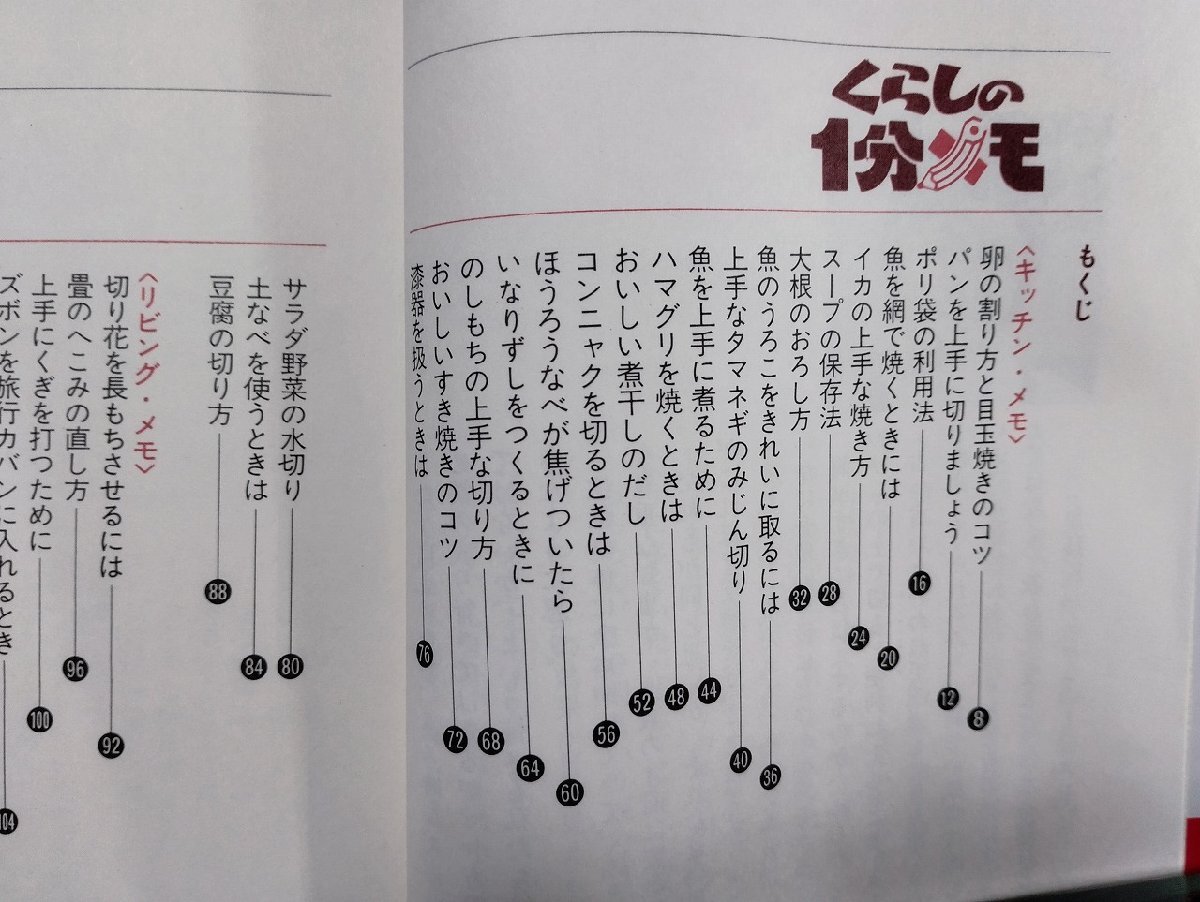 くらしの
1分メモ
もくじ
〈キッチン・メモ〉
卵の割り方と目玉焼きのコツ 8
パンを上手に切りましょう 12
ポリ袋の利用法 16
魚を網で焼くときには 20
イカの上手な焼き方 24
スープの保存法 28
大根のおろし方 32
魚のうろこをきれいに取るには 36
上手なタマネギのみじん切り 40
魚を上手に煮るために 44
ハマグリを焼くときは 48
おいしい煮干しのだし 52
コンニャクを切るときは 56
ほうろうなべが焦げついたら 60
いなりずしをつくるときに 64
のしもちの上手な切り方 68
おいしいすき焼きのコツ 72
漆器を扱うときは 76
サラダ野菜の水切り 80
土なべを使うときは 84
豆腐の切り方 88
〈リビング・メモ〉
切り花を長もちさせるには 92
畳のへこみの直し方 96
上手にくぎを打つために 100
ズボンを旅行カバンに入れるとき 104